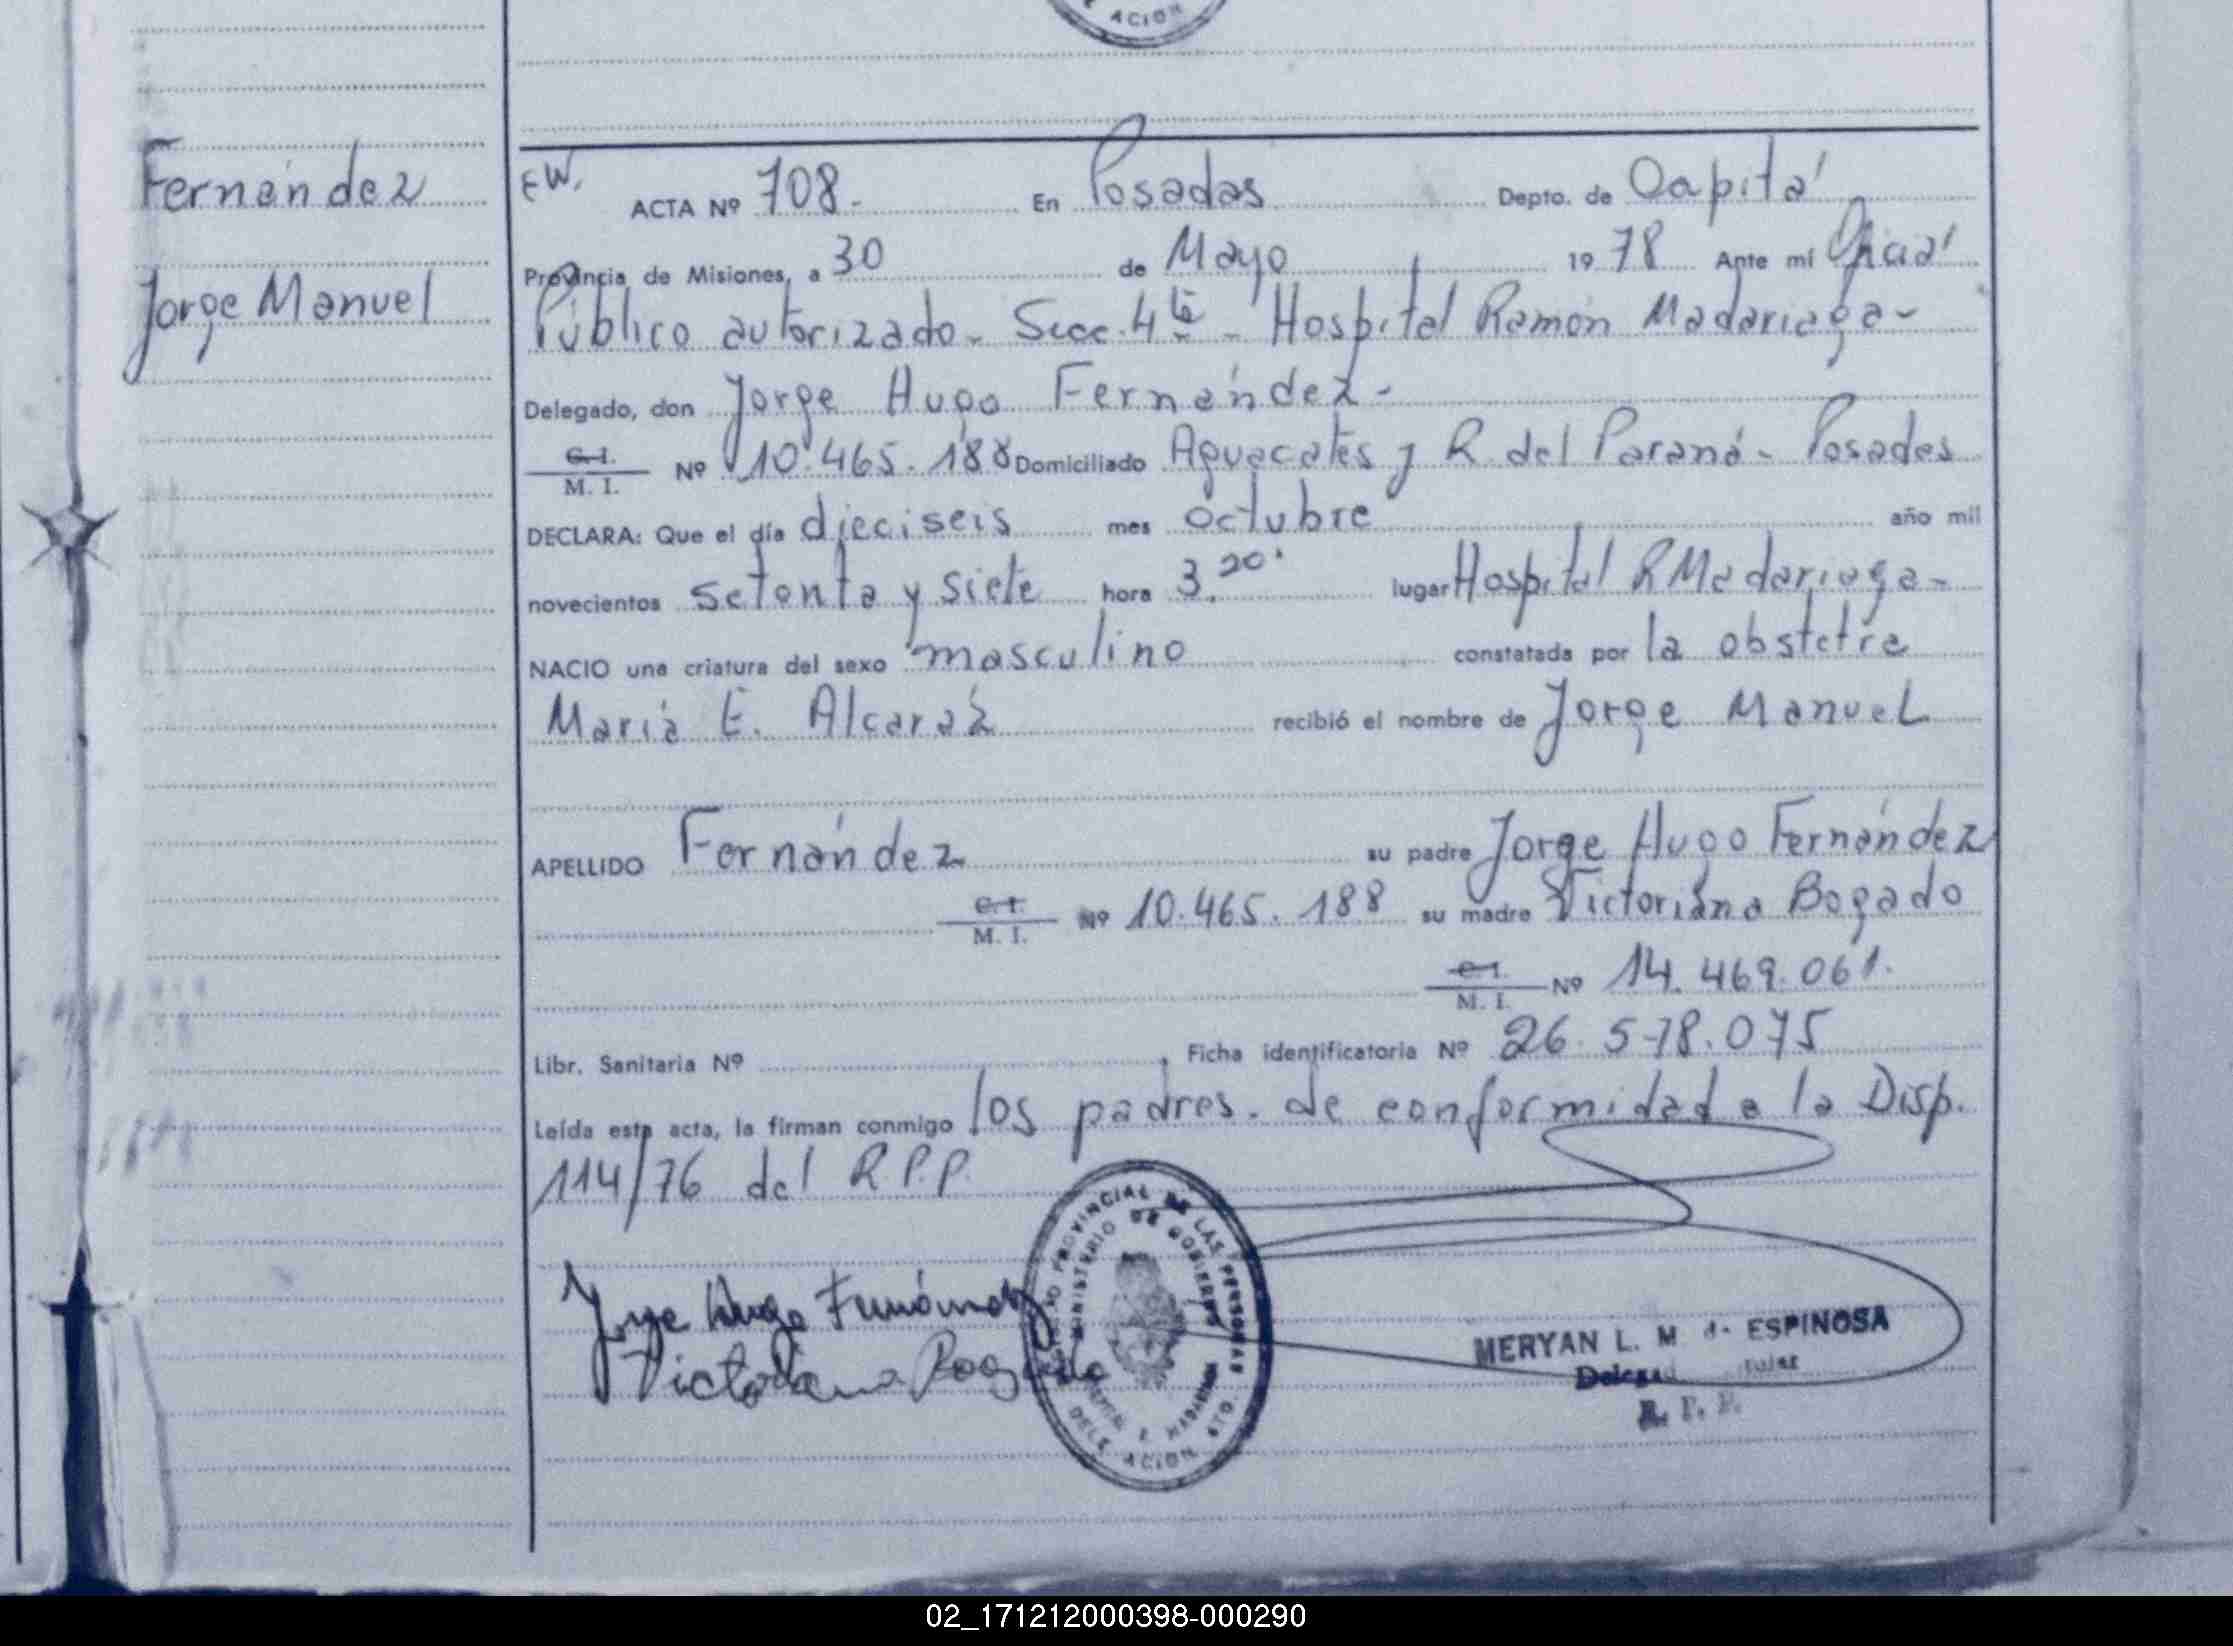 ACION
Fernández
Jorge Manuel
EW.
ACTA Nº 708.- En Posadas Depto. de Capital
Provincia de Misiones, a 30 de Mayo 1978 Ante mí Oficial
Público autorizado- Secc. 4ta - Hospital Ramón Madariaga-
Delegado, don Jorge Hugo Fernández-
C.I.
M. I. Nº 10.465.188 Domiciliado Aguacates y R. del Paraná- Posadas
DECLARA: Que el día dieciseis mes octubre año mil
novecientos setenta y siete hora 3.20' lugar Hospital R Madariaga-
NACIO una criatura del sexo masculino constatada por la obstetre
María E. Alcaráz recibió el nombre de Jorge Manuel
APELLIDO Fernández su padre Jorge Hugo Fernández
C.I.
M. I. Nº 10.465.188 su madre Victoriana Bogado
C.I.
M. I. Nº 14.469.061.
Libr. Sanitaria Nº , Ficha identificatoria Nº 26.578.075
Leída esta acta, la firman conmigo los padres. de conformidad a la Disp.
114/76 del R.P.P.
PROVINCIAL DE LAS PERSONAS
MINISTERIO DE GOBIERNO
HOSPITAL R. MADARIAGA
DELEGACION 4TO.
Jorge Hugo Fernández
Victoriana Bogado
MERYAN L. M de ESPINOSA
R. P. P.
02_171212000398-000290